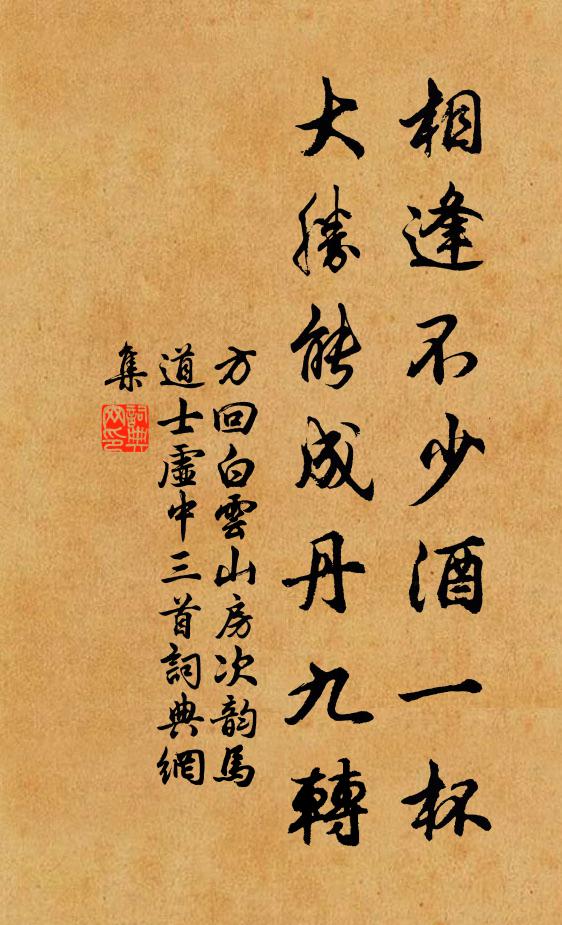 相逢不少酒一杯
大勝能成丹九轉
方回白雲山房次韵馬
道士虛中三首詞典網
集
詞典網印